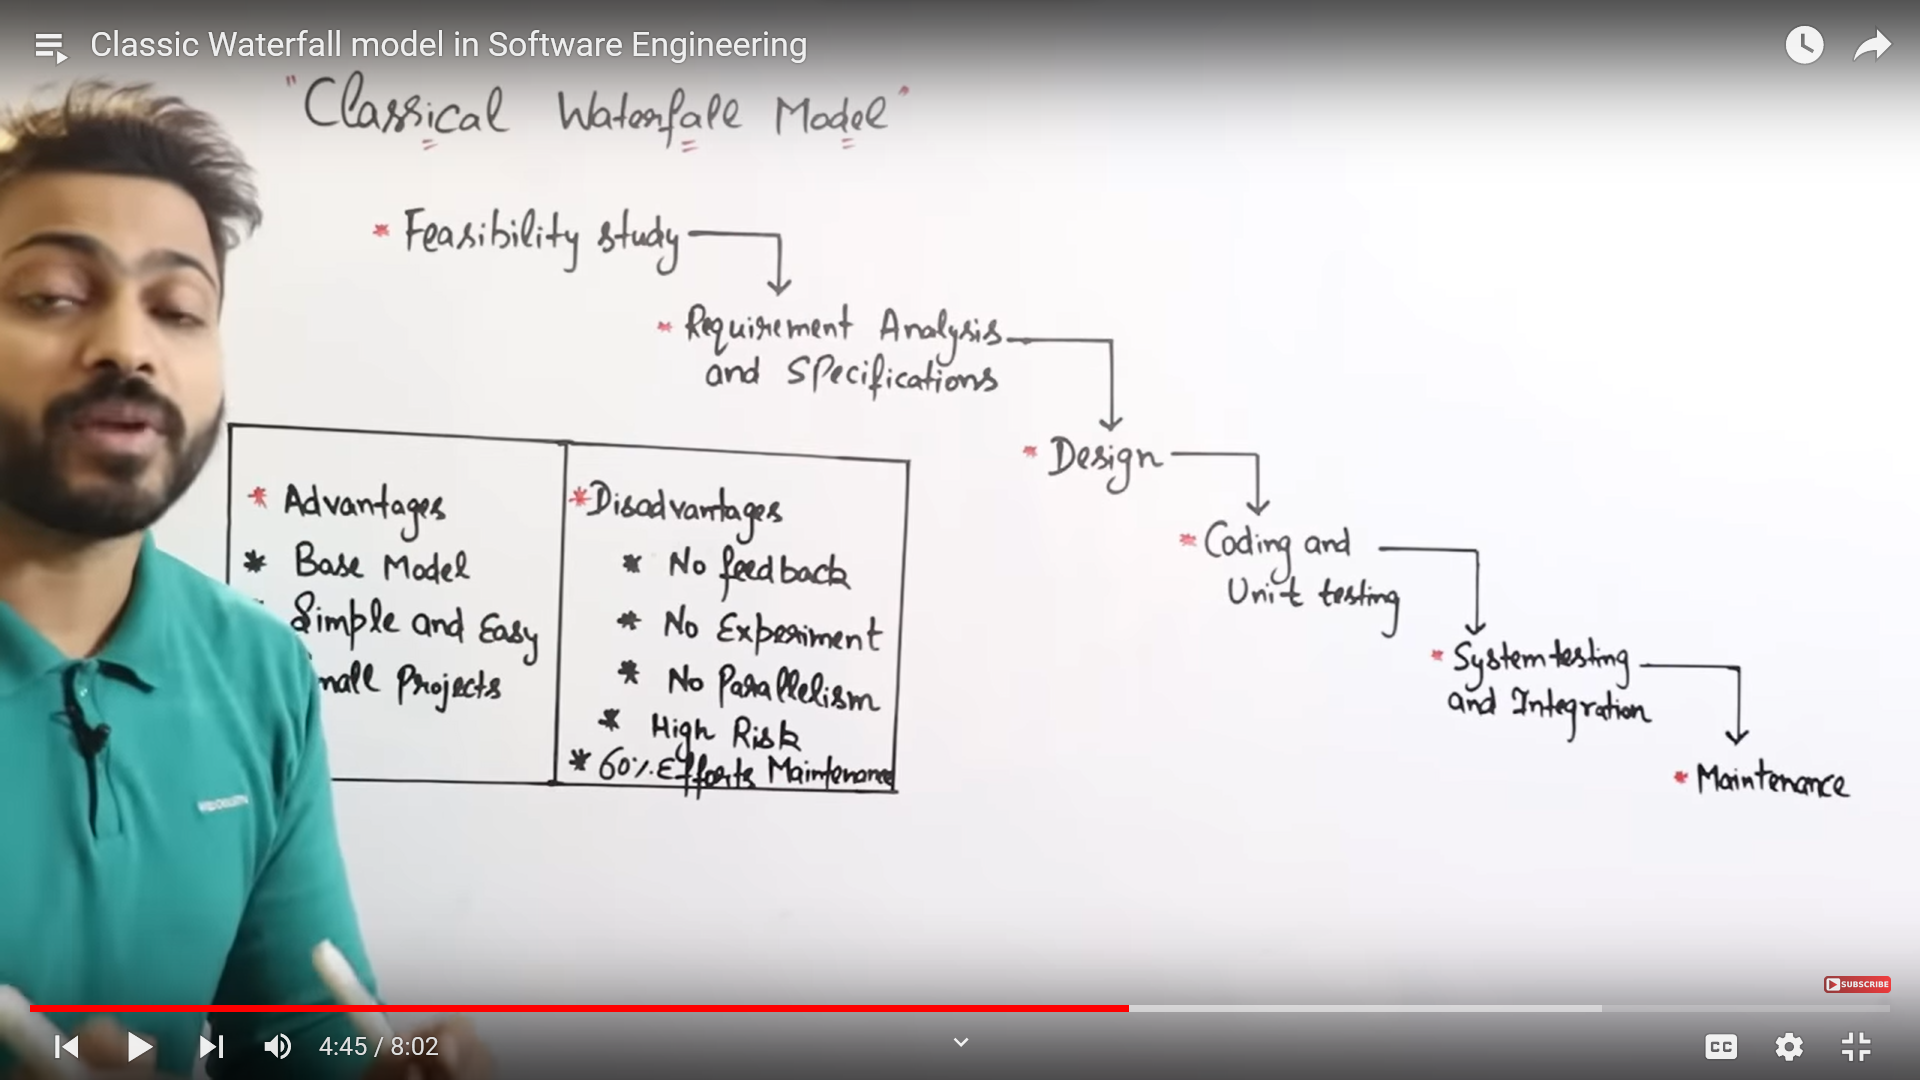 Classic Waterfall model in Software Engineering
"Classical Waterfall Model"
* Feasibility study
* Requirement Analysis
and Specifications
* Design
* Coding and
Unit testing
* System testing
and Integration
* Maintenance
* Advantages
* Base Model
Simple and Easy
mall Projects
* Disadvantages
* No feedback
* No Experiment
* No Parallelism
* High Risk
* 60% Efforts Maintenance
SUBSCRIBE
4:45 / 8:02
CC